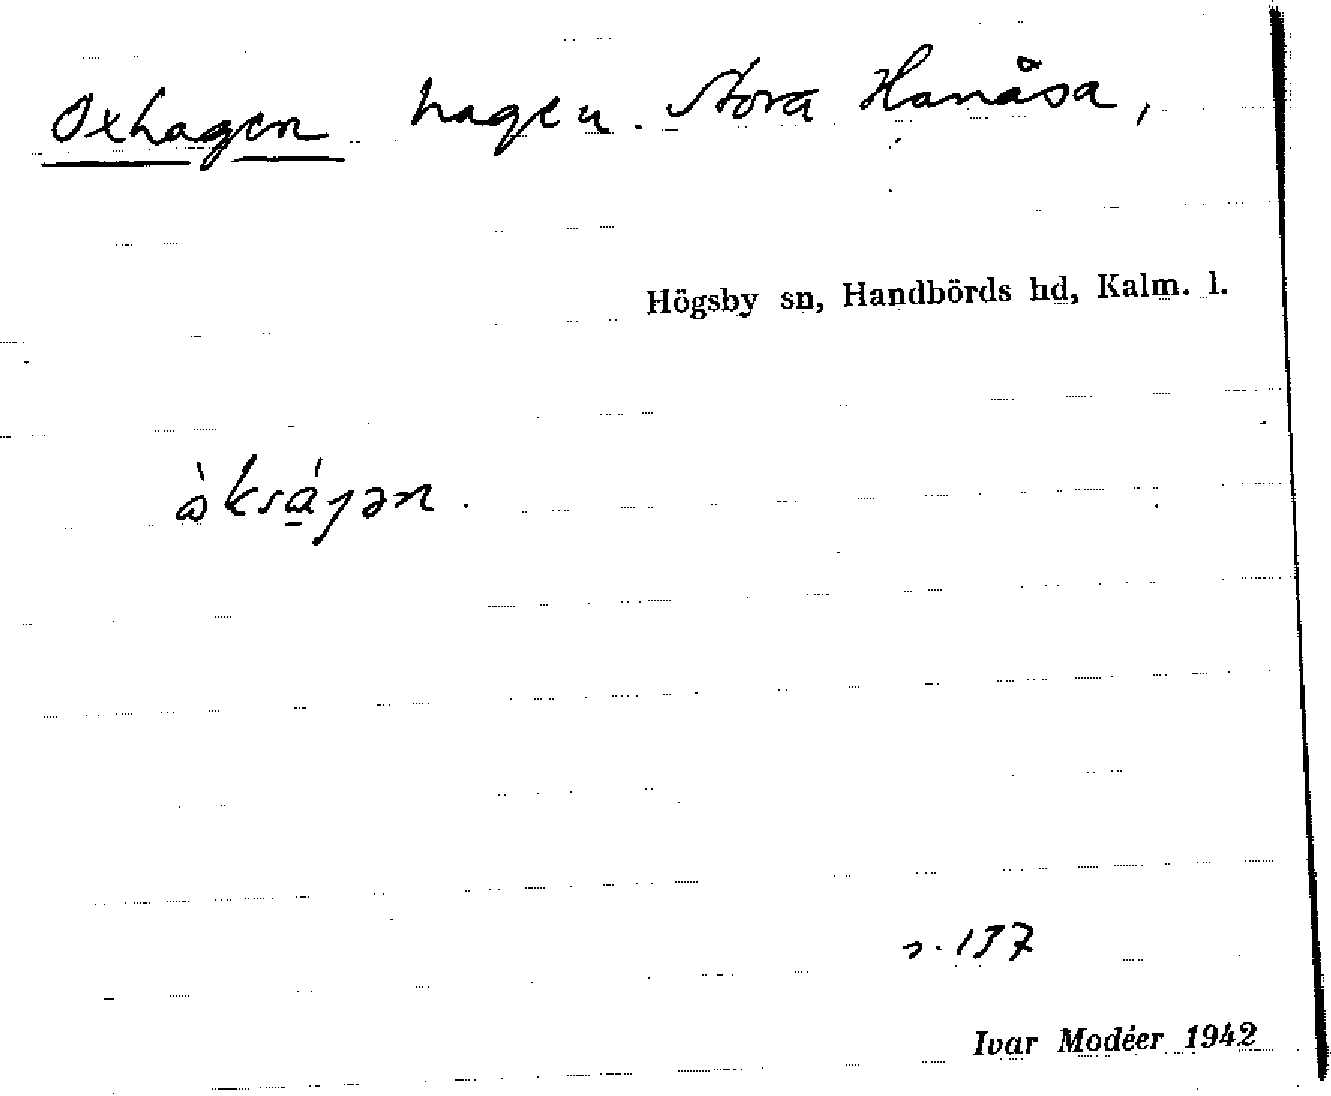 Oxhagen hagen. Stora Hanåsa,
Högsby sn, Handbörds hd, Kalm. l.
s. 137
Ivar Modéer 1942